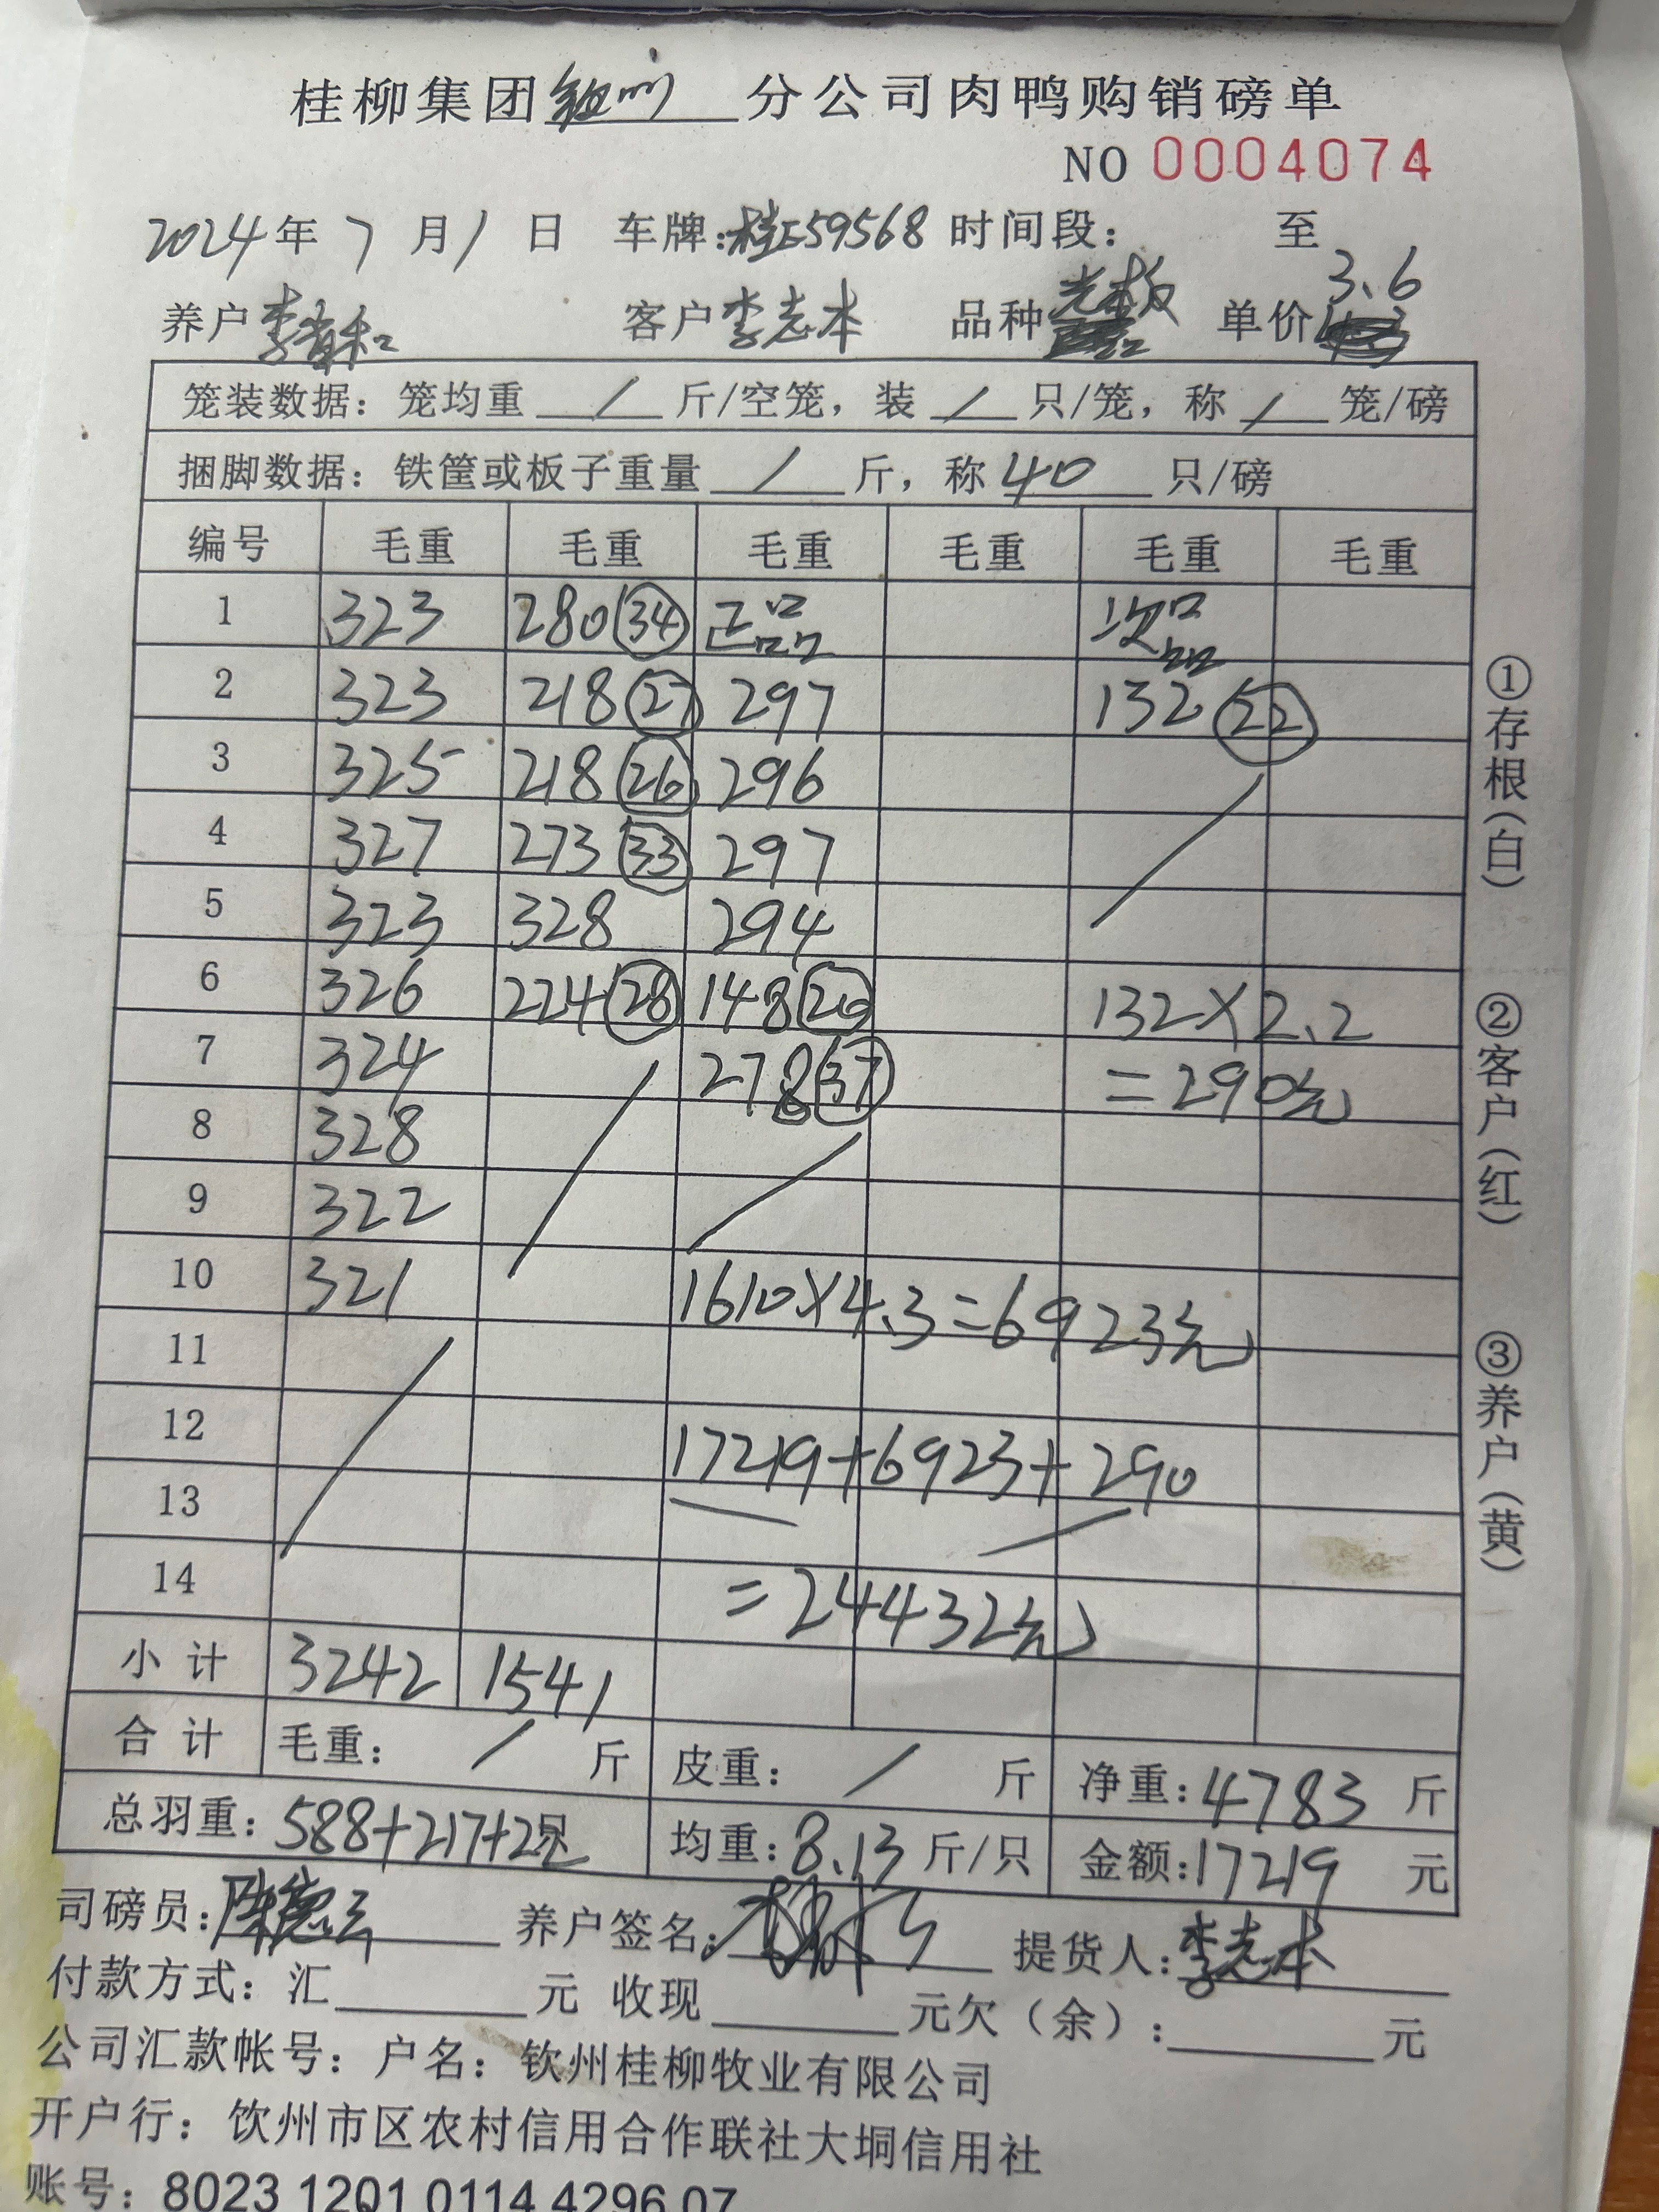 桂柳集团钦州分公司肉鸭购销磅单
NO 0004074
2024年7月1日 车牌:桂E59568 时间段: 至
养户李 和 客户李志本 品种光板 单价3.6
笼装数据:笼均重 / 斤/空笼,装 / 只/笼,称 / 笼/磅
捆脚数据:铁筐或板子重量 / 斤,称 40 只/磅
编号 毛重 毛重 毛重 毛重 毛重 毛重
1 323 280(34) 正品 次品
2 323 218(27) 297 132(22)
3 325 218(26) 296
4 327 273(33) 297
5 323 328 294
6 326 224(28) 148(20) 132×2.2
7 324 278(37) =290元
8 328
9 322
10 321 1610×4.3=6923元
11
12 17219+6923+290
13
14 =24432元
小计 3242 1541
合计 毛重: / 斤 皮重: / 斤 净重:4783斤
总羽重:588+217+22只 均重:8.13斤/只 金额:17219元
司磅员:陈 云 养户签名: 提货人:李志本
付款方式:汇 元 收现 元欠(余): 元
公司汇款帐号:户名:钦州桂柳牧业有限公司
开户行:饮州市区农村信用合作联社大垌信用社
账号:8023 1201 0114 4296 07
①存根(白)
②客户(红)
③养户(黄)